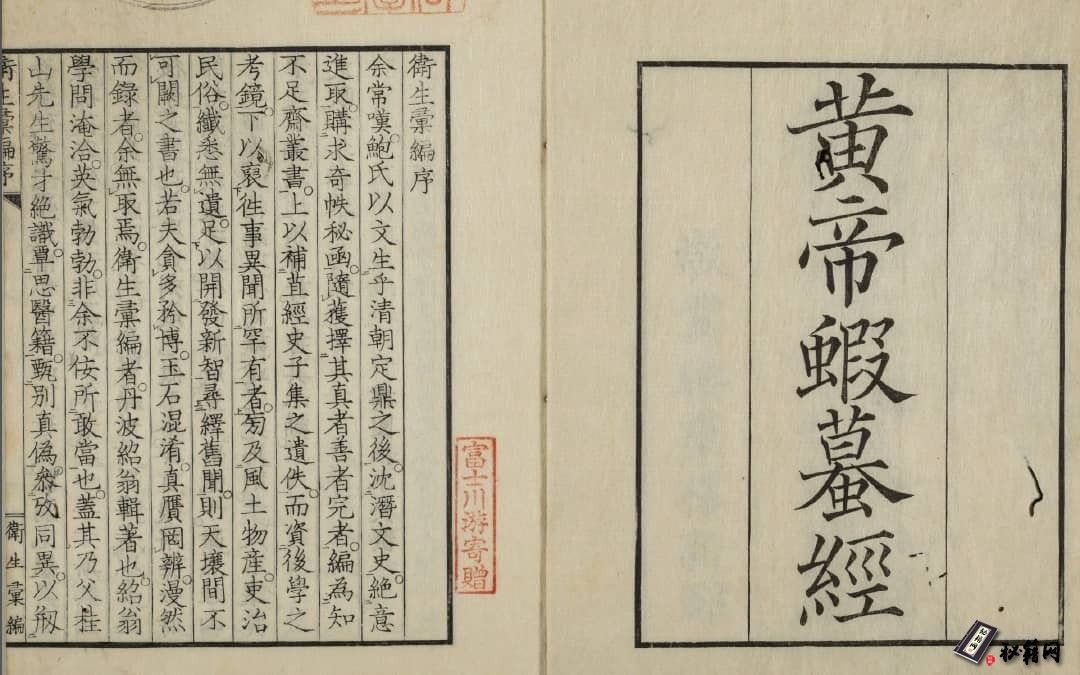 黃帝蝦蟇經
衛生彙編序
余常嘆。鮑氏以文生乎清朝定鼎之後。沈潛文史。絕意
進取。購求奇帙秘函。隨獲擇其真者善者完者。編為知
不足齋叢書。上以補苴經史子集之遺佚。而資後學之
考鏡。下以裒往事異聞所罕有者。旁及風土物產。吏治
民俗。纖悉無遺。足以開發新智尋繹舊聞。則天壤間不
可闕之書也。若夫貪多矜博。玉石混淆。真贋罔辨。漫然
而錄者。余無取焉。衛生彙編者。丹波紹翁輯著也。紹翁
學問淹洽。英氣勃勃。非余不佞所敢當也。蓋其乃父桂
山先生驚才絕識。覃思醫籍。甄別真偽。參攷同異。以
衛生彙編序
衛生彙編
富士川游寄贈
秘籍网